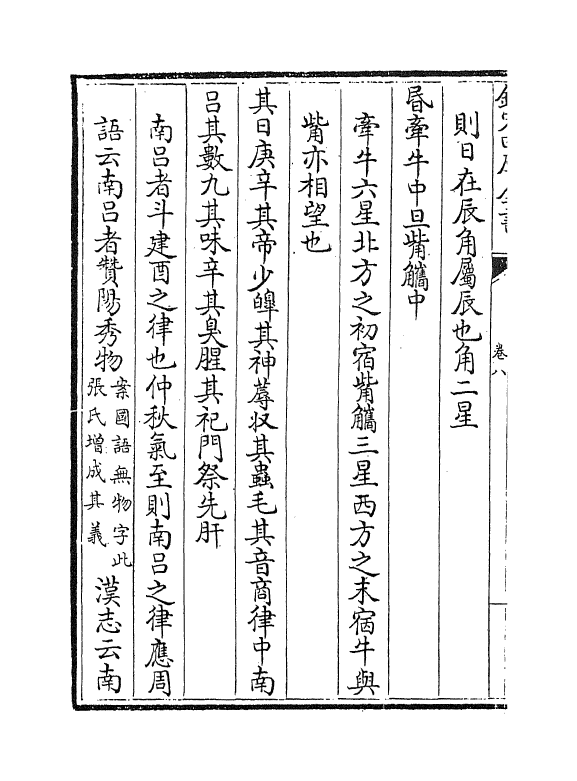 欽定四庫全書
卷八
則日在辰角屬辰也角二星
昬牽牛中旦觜觿中
牽牛六星北方之初宿觜觿三星西方之末宿牛與
觜亦相望也
其日庚辛其帝少皥其神蓐收其蟲毛其音商律中南
呂其數九其味辛其臭腥其祀門祭先肝
南呂者斗建酉之律也仲秋氣至則南呂之律應周
語云南呂者贊陽秀物案國語無物字此
張氏增成其義漢志云南